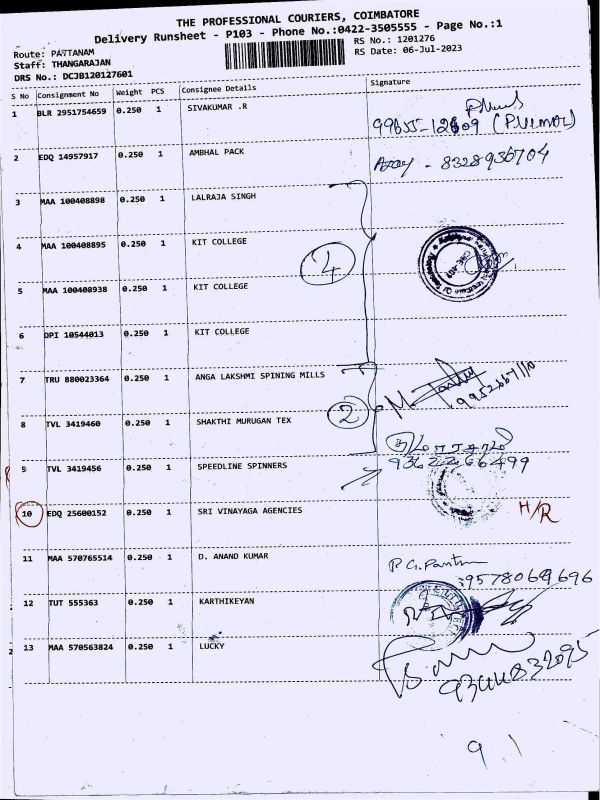 THE PROFESSIONAL COURIERS, COIMBATORE
Delivery Runsheet - P103 - Phone No.:0422-3505555 - Page No.:1
Route: PATTANAM
RS No.: 1201276
Staff: THANGARAJAN
RS Date: 06-Jul-2023
DRS No.: DCJB120127601
S No Consignment No Weight PCS Consignee Details Signature
1 BLR 2951754659 0.250 1 SIVAKUMAR .R
99655-12609
2 EDQ 14957917 0.250 1 AMBHAL PACK
8328936704
3 MAA 100408898 0.250 1 LALRAJA SINGH
4 MAA 100408895 0.250 1 KIT COLLEGE
4
5 MAA 100408938 0.250 1 KIT COLLEGE
6 DPI 10544013 0.250 1 KIT COLLEGE
7 TRU 880023364 0.250 1 ANGA LAKSHMI SPINING MILLS
8 TVL 3419460 0.250 1 SHAKTHI MURUGAN TEX 2
9 TVL 3419456 0.250 1 SPEEDLINE SPINNERS 9362266499
10 EDQ 25600152 0.250 1 SRI VINAYAGA AGENCIES H/R
11 MAA 570765514 0.250 1 D. ANAND KUMAR
12 TUT 555363 0.250 1 KARTHIKEYAN
13 MAA 570563824 0.250 1 LUCKY
9344832095
9 1